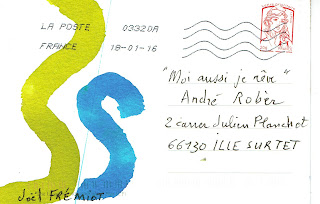 LA POSTE 03320A
FRANCE 18-01-16
"Moi aussi je rêve"
André Robèr
2 carrer Julien Planchot
66130 ILLE SUR TET
Joël FRÉMIOT